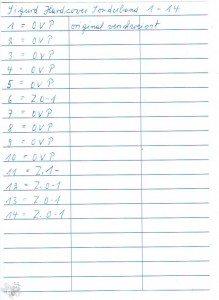 Sigurd Hardcover Sonderband 1 - 14
1 = OVP original verschweisst
2 = OVP
3 = OVP
4 = OVP
5 = OVP
6 = Z.0-1
7 = OVP
8 = OVP
9 = OVP
10 = OVP
11 = Z.1-
12 = Z.0-1
13 = Z.0-1
14 = Z.0-1